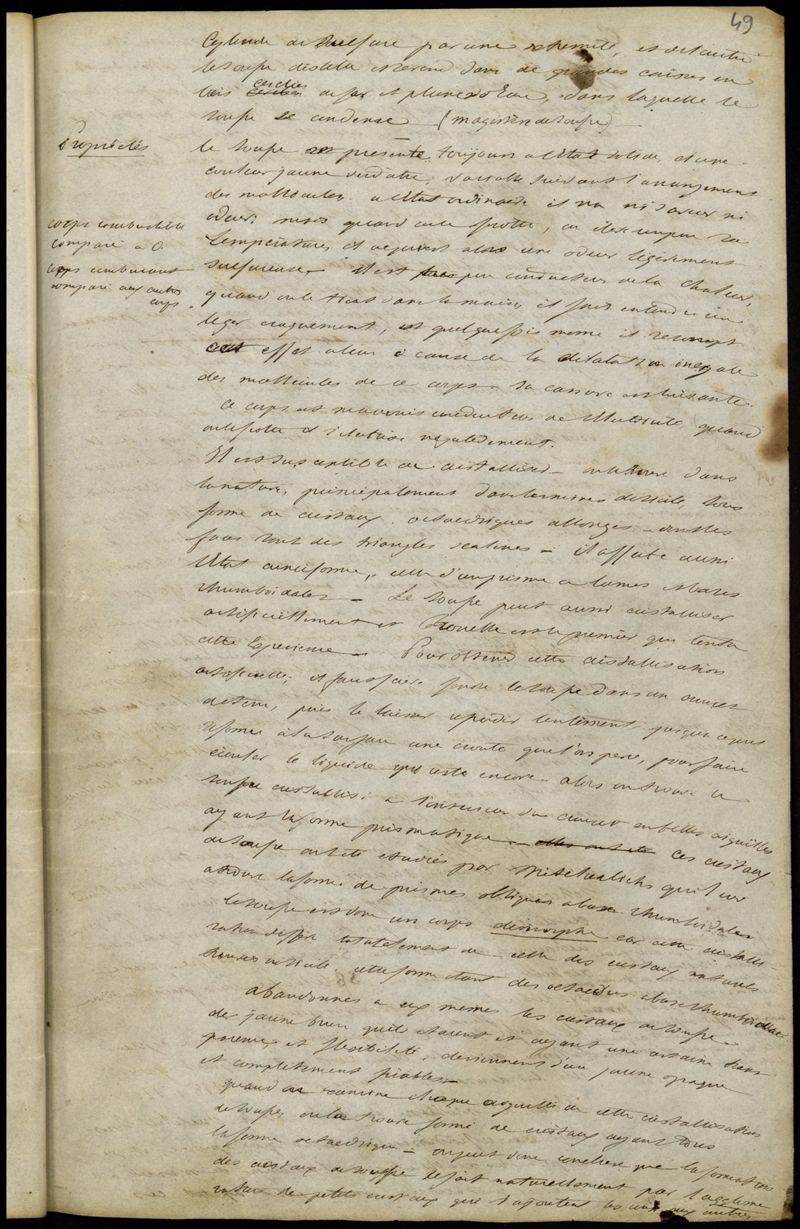 49
Cylindre de Sulfure par une extremité, et de l'autre
le soufre distille et se rend dans de grandes caisses en
bois cerclées de fer et pleines d'Eau, dans laquelle le
soufre se condense (magistère de soufre)
Propriétés
le soufre se présente toujours a l'état solide, d'une
couleur jaune verdatre, variable suivant l'arrangement
des molécules. a l'état ordinaire il n'a ni saveur ni
odeur; mais quand on le frotte, on élève un peu sa
température, et acquiert alors une odeur légèrement
sulfureuse. Il est peu conducteur de la chaleur,
corps combustible
comparé a O.
corps comburant
comparé aux autres
corps
quand on le tient dans la main, il fait entendre un
leger craquement, et quelquefois meme il se rompt
cet effet a lieu a cause de la dilatation inégale
des molécules de ce corps. Sa cassure est luisante.
Ce corps est mauvais conducteur de l'électricité, quand
on le frotte il s'électrise négativement.
Il est susceptible de cristalliser. on le trouve dans
la nature, principalement dans les mines de Sicile, sous
forme de cristaux octaedriques allongés dont les
faces sont des triangles scalènes. il affecte aussi
l'état cunéiforme, celle d'un prisme a bases
rhomboidales. Le soufre peut aussi cristalliser
artificiellement et Rouelle est le premier qui tenta
cette Expérience. Pour obtenir cette cristallisation
artificielle, il faut faire fondre le soufre dans un creuset
de terre, puis le laisser refroidir lentement jusqu'a ce qu'il
se forme a la surface une croute que l'on perce, pour faire
écouler le liquide qui reste encore. alors on trouve le
soufre cristallisé a l'intérieur du creuset en belles aiguilles
ayant la forme prismatique. elles ont été ces cristaux
de soufre ont été étudiés par Mitscherlich, qui leur
a trouvé la forme de prismes obliques a base rhomboidale
le soufre est donc un corps dimorphe car cette cristalli-
sation diffère totalement de celle des cristaux naturels
trouvés en Sicile, cette forme étant des octaedres a base rhomboidale
abandonnés a eux memes les cristaux de soufre
de jaune brun qu'ils étaient et ayant une certaine trans-
parence et flexibilité, deviennent d'un jaune opaque
et complètement friables.
quand on examine chaque aiguille de cette cristallisation
de soufre, on la trouve formée de cristaux ayant tous
la forme octaedrique. on peut donc conclure que la formation
des cristaux de soufre se fait naturellement par l'agglomé-
ration de petits cristaux qui s'ajoutent les uns aux autres